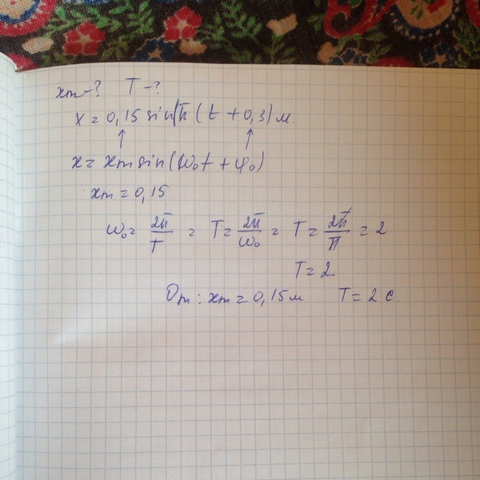 xm-? T-?
x = 0,15 sin π (t + 0,3) м.
x = xm sin (ω₀t + φ₀)
xm = 0,15
ω₀ = 2π/T = T = 2π/ω₀ = T = 2π/π = 2
T = 2
От: xm = 0,15 м T = 2 с.